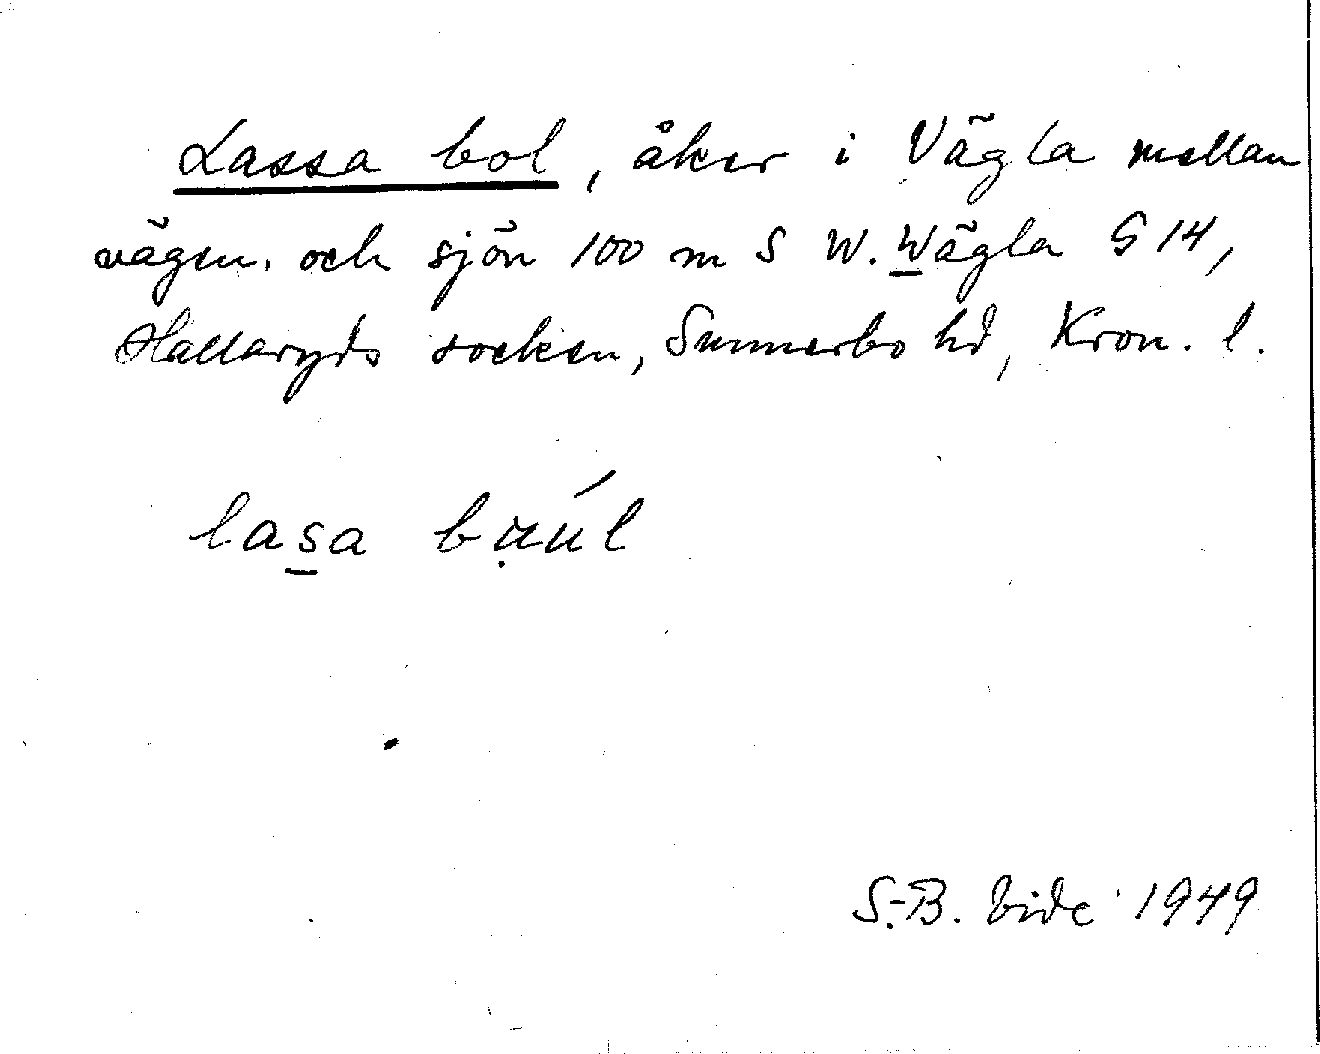 Lassa bol, åker i Vägla mellan
vägen och sjön 100 m S W. Wägla G 14,
Hallaryds socken, Sunnerbo hd, Kron. l.
lasa
S.-B. Vide 1949